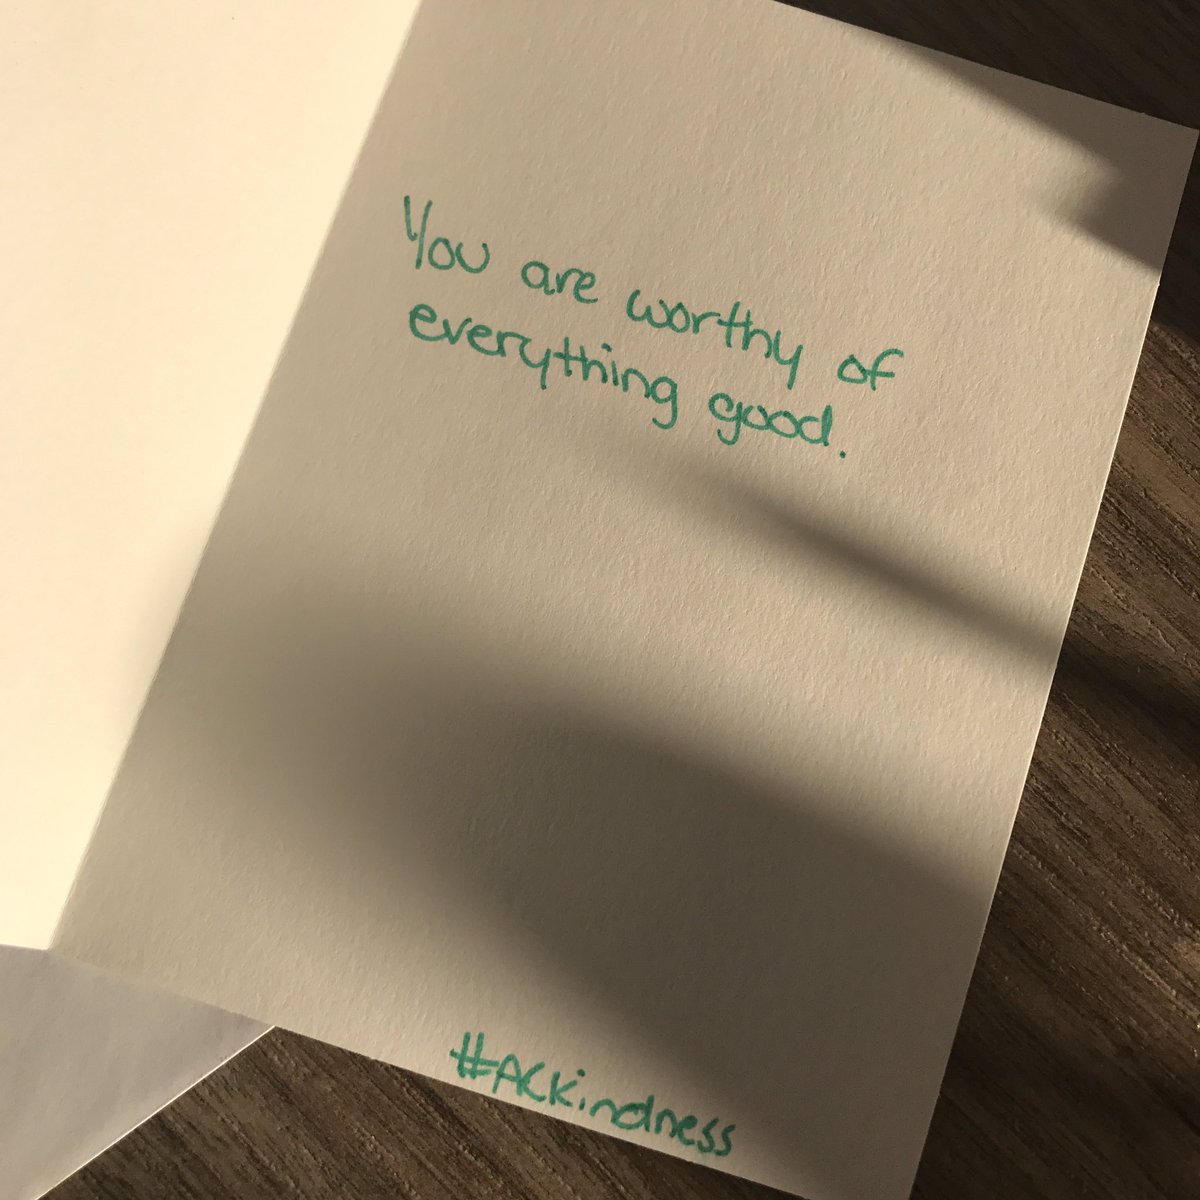 You are worthy of
everything good.
#ACKindness